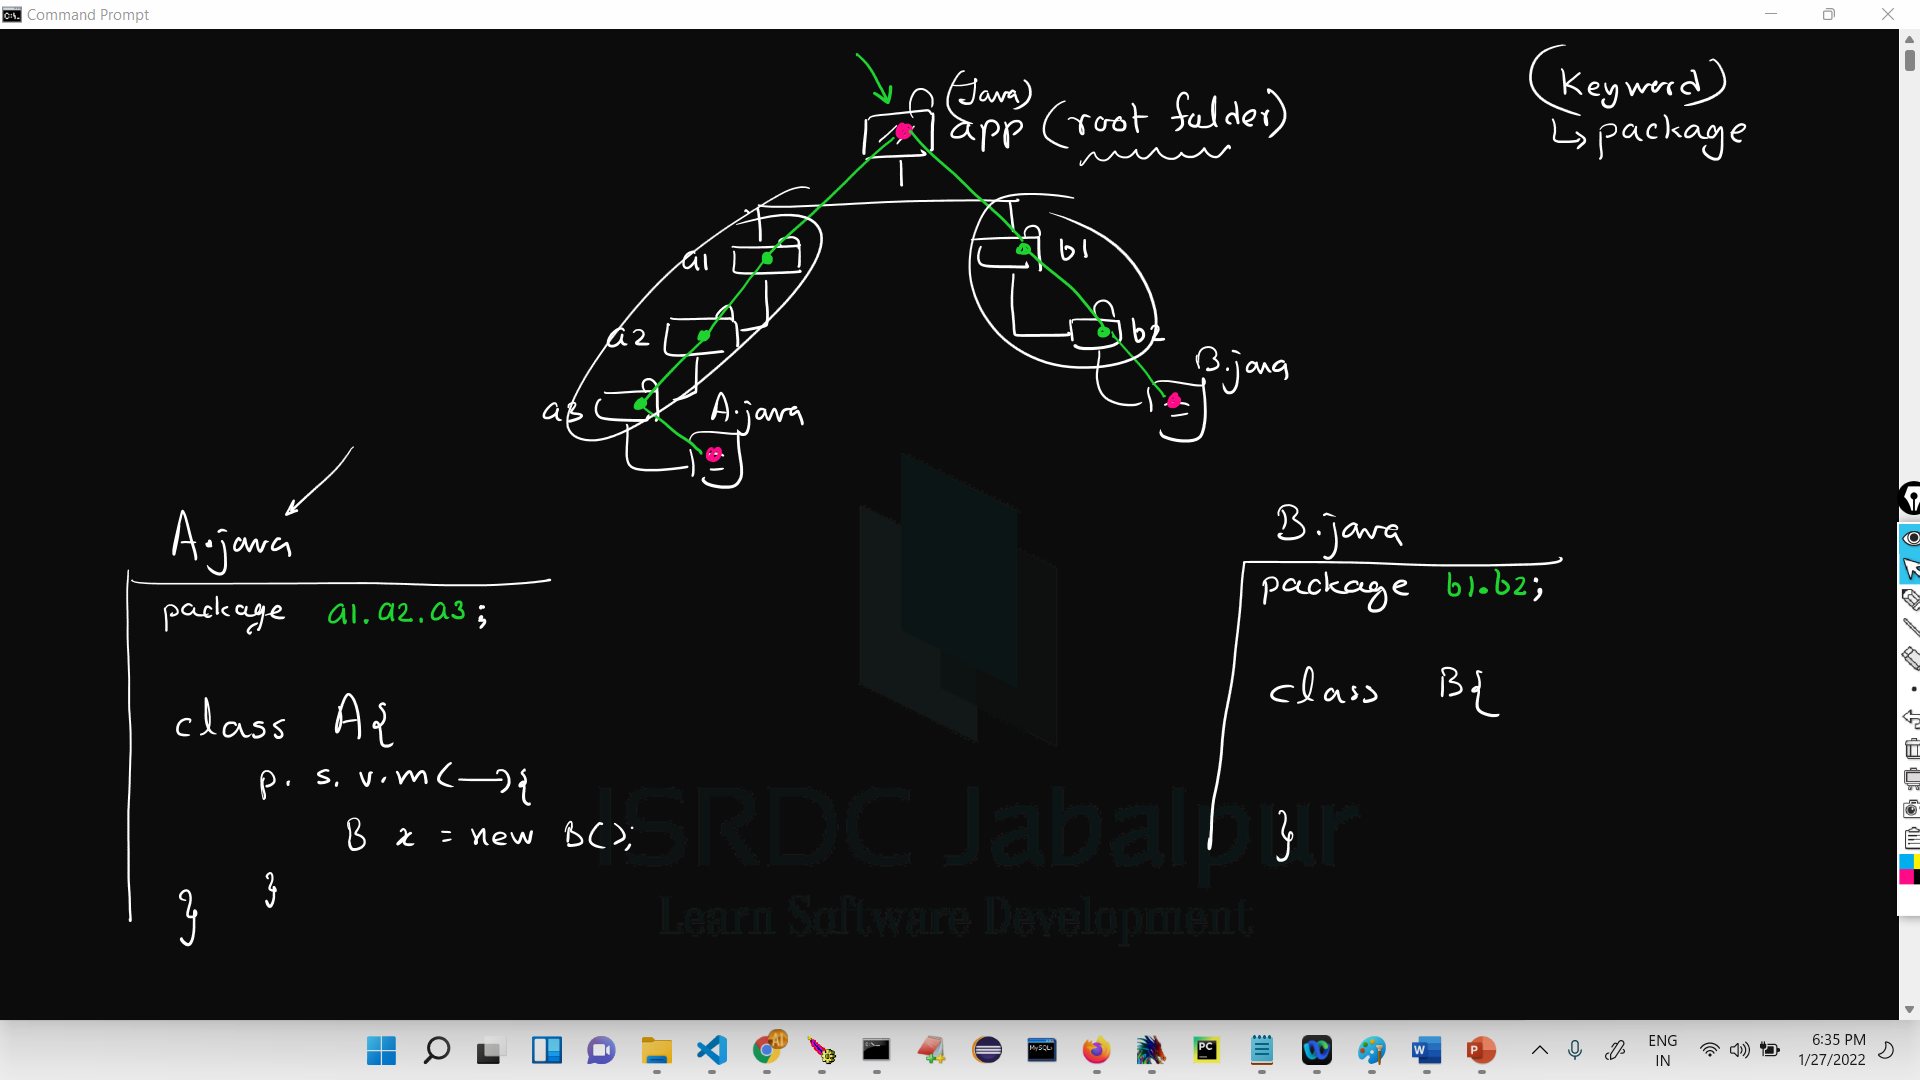 Command Prompt
(Java)
app (root folder)
(Keyword)
↳ package
a1
b1
a2
b2
B.java
a3
A.java
A.java
package a1.a2.a3;
class A{
p. s. v. m(—){
B x = new B();
}
}
B.java
package b1.b2;
class B{
}
ISRDC Jabalpur
Learn Software Development
AI
MySQL
PC
W
P
ENG
IN
6:35 PM
1/27/2022